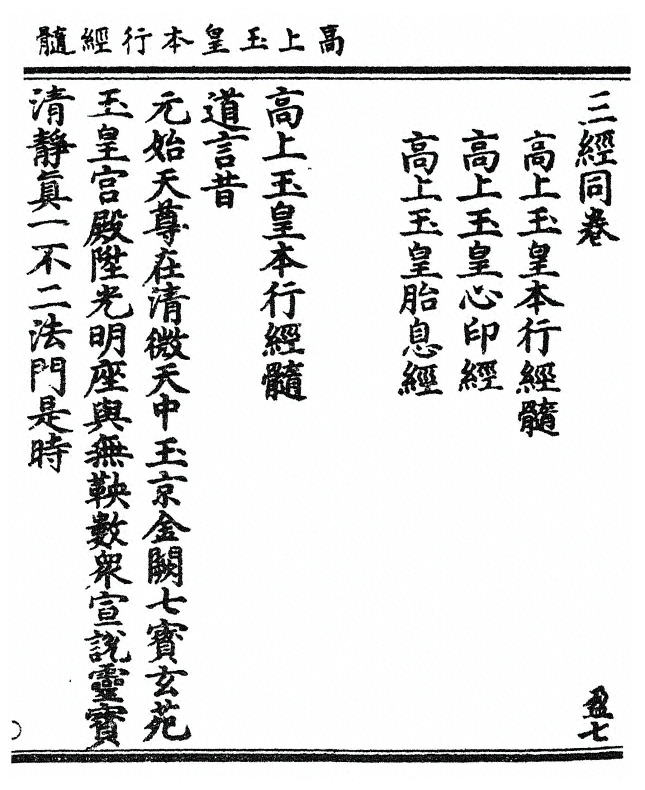 高上玉皇本行經髓
三經同卷
盈七
高上玉皇本行經髓
高上玉皇心印經
高上玉皇胎息經
高上玉皇本行經髓
道言昔
元始天尊在清微天中玉京金闕七寶玄苑
玉皇宮殿陞光明座與無鞅數衆宣說靈寶
清靜眞一不二法門是時